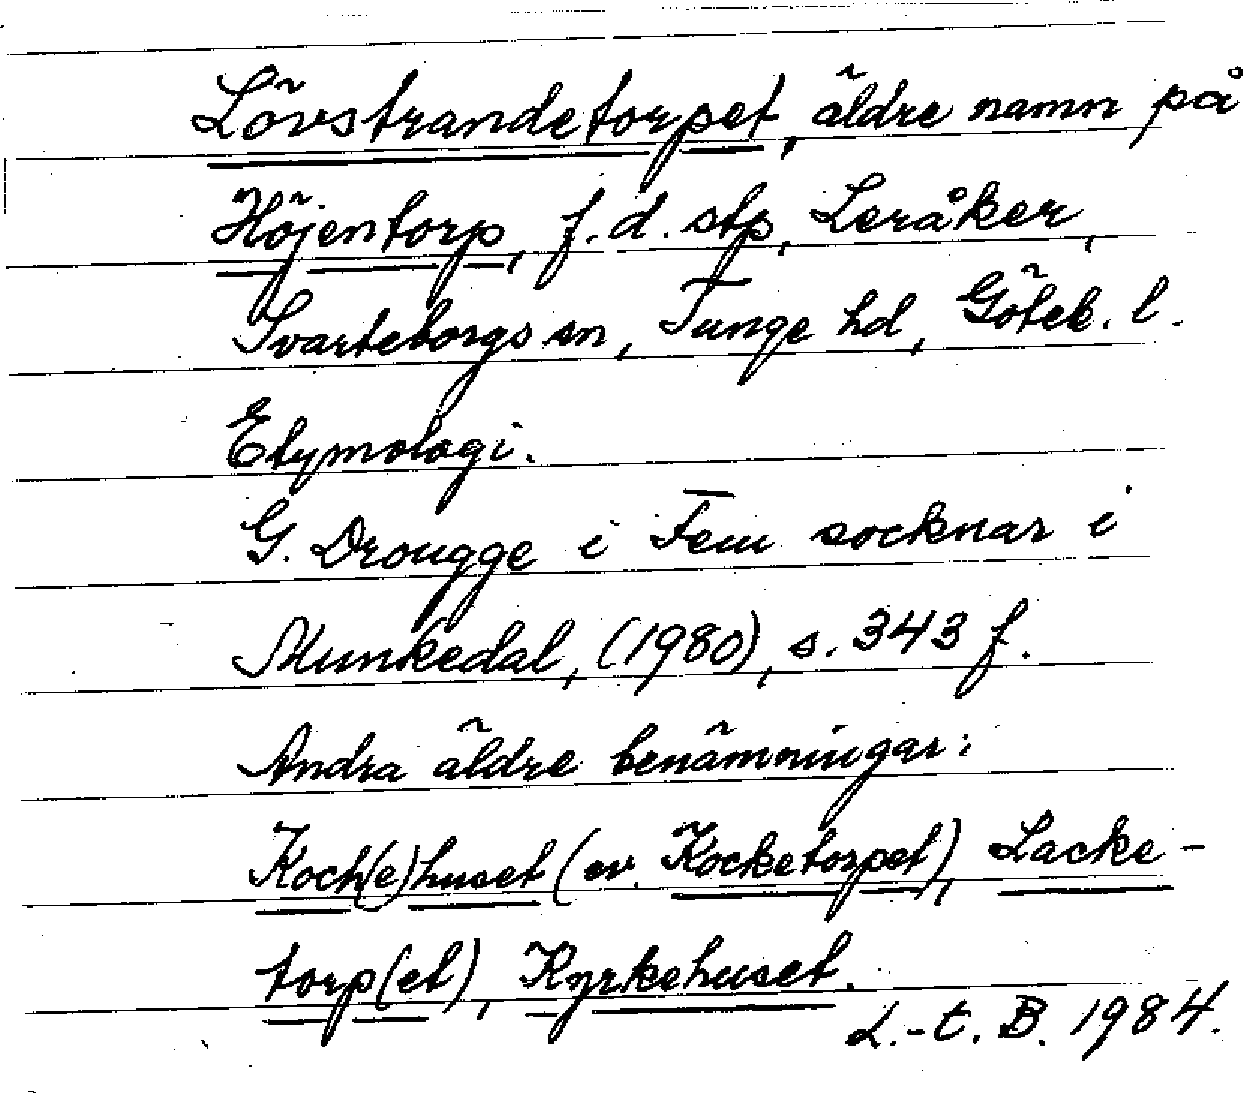 Lövstrandetorpet, äldre namn på
Höjentorp, f.d. stp, Leråker,
Svarteborgs sn, Tunge hd, Göteb. l.
Etymologi.
G. Drougge i Fem socknar i
Munkedal, (1980), s. 343 f.
Andra äldre benämningar:
Koch(e)huset (ev. Kocketorpet), Lacke-
torp(et), Kyrkehuset.
L.-t. B. 1984.